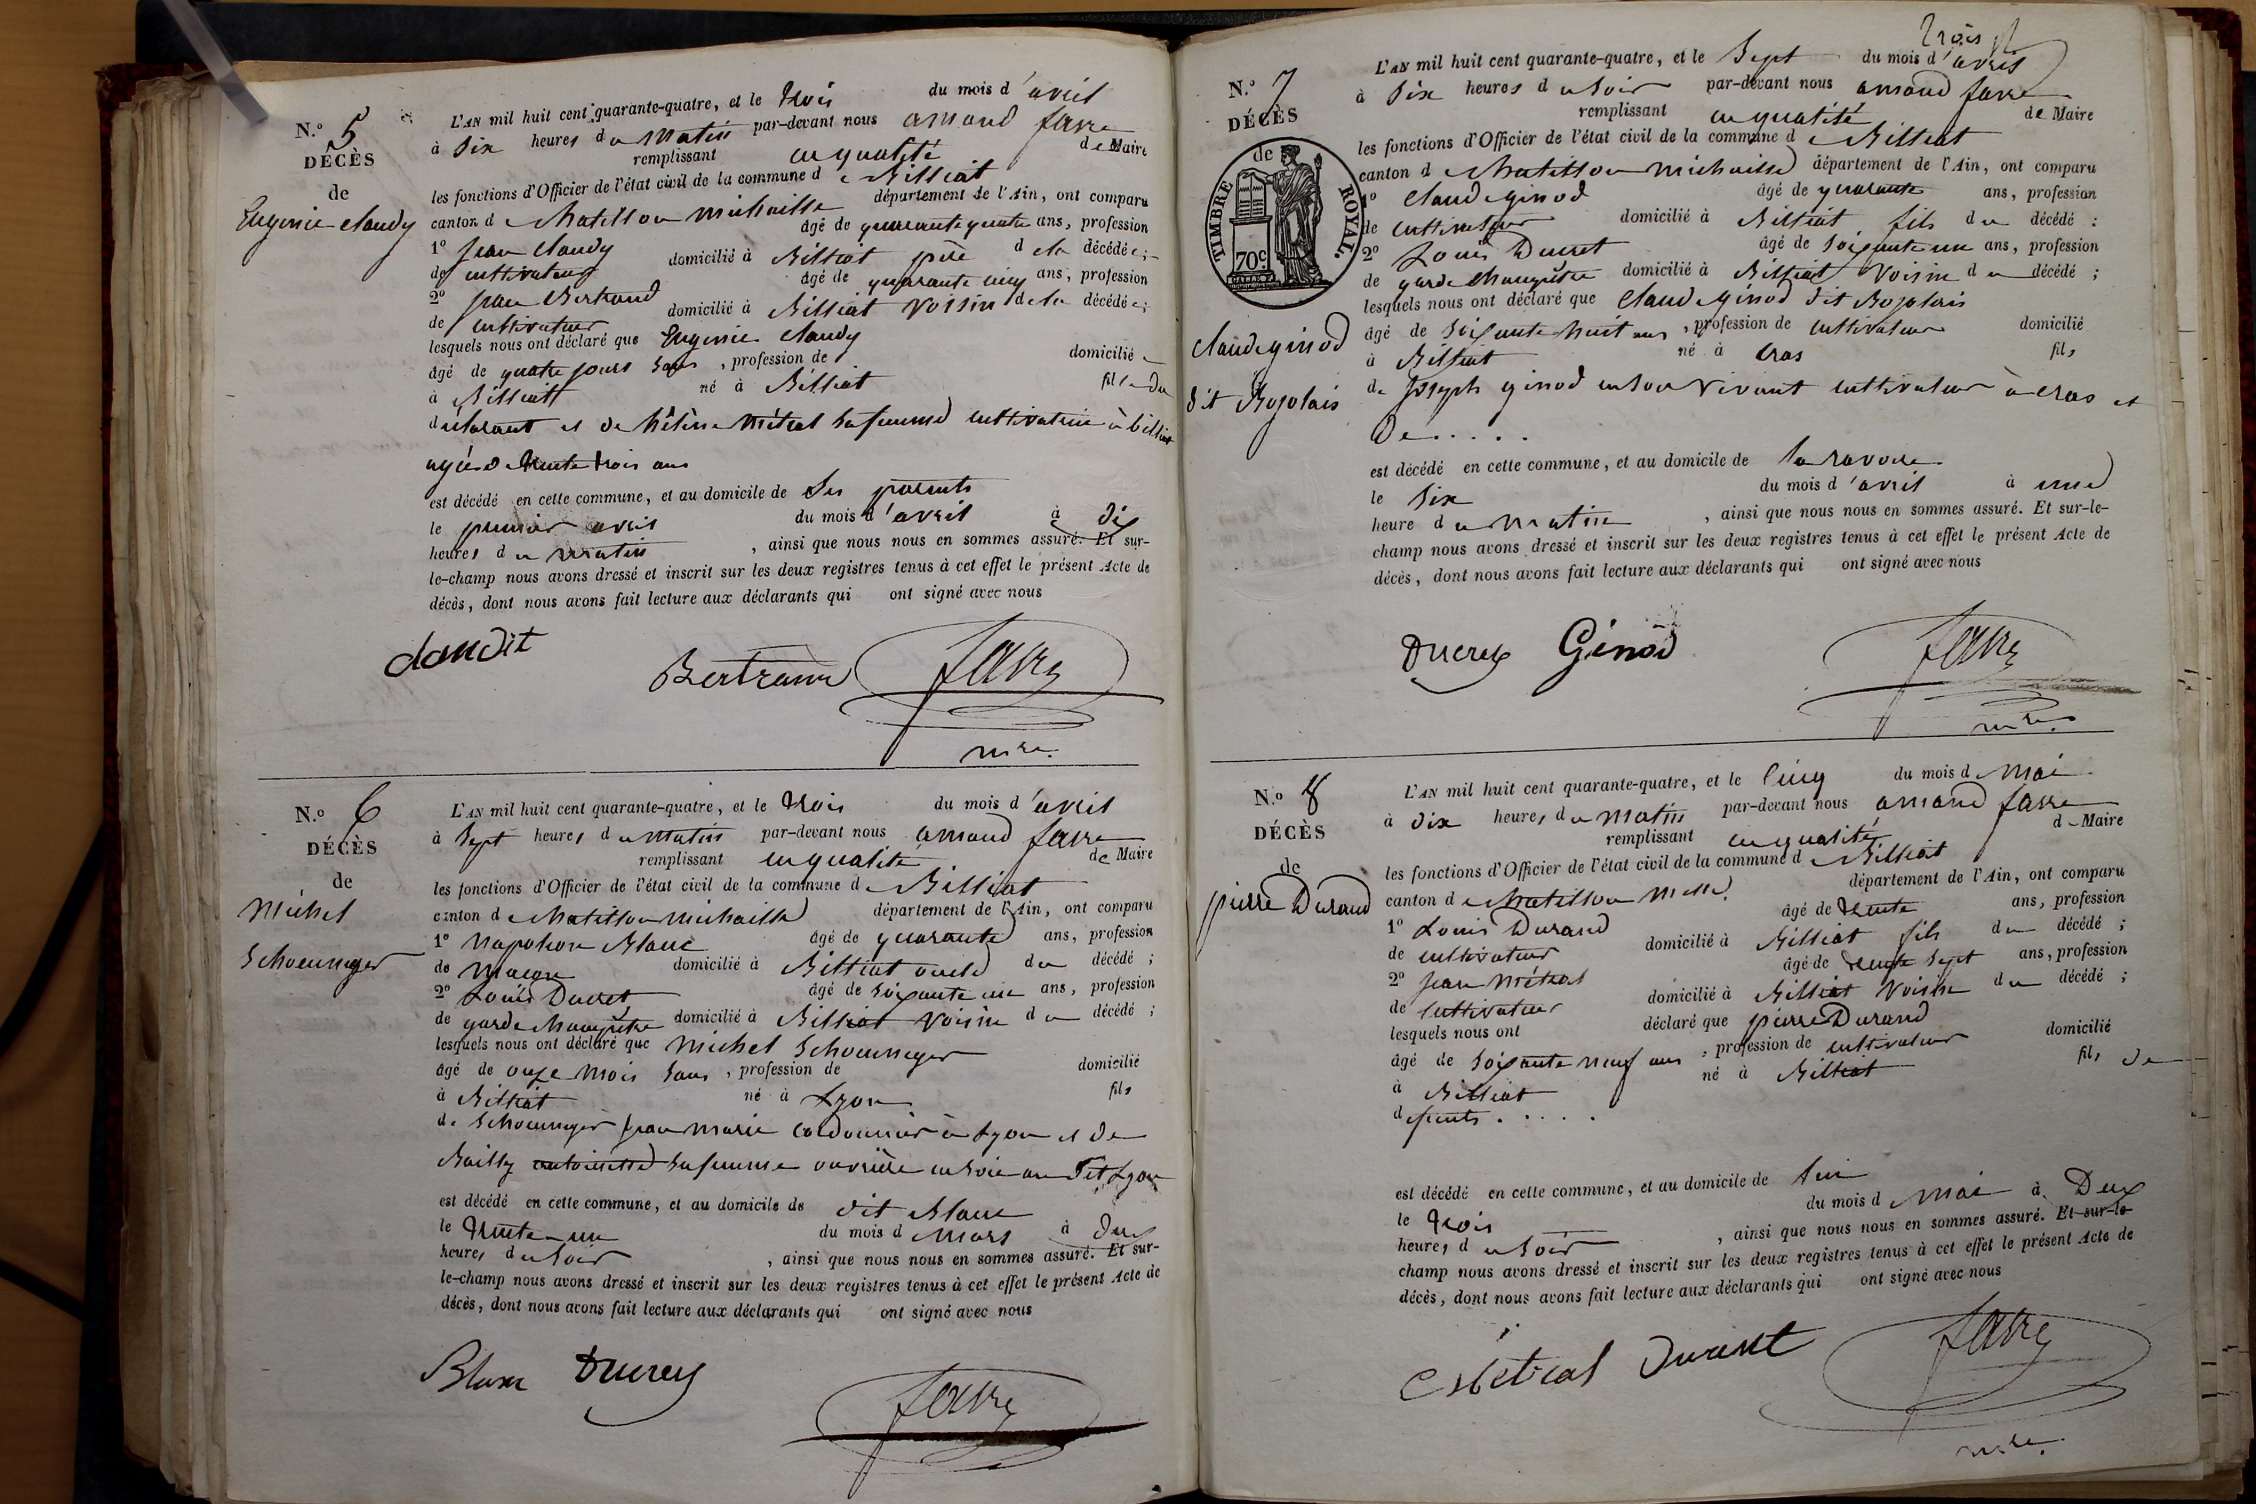 N.º 5
DÉCÈS
de
Eugenie Claudy
L'AN mil huit cent quarante-quatre, et le trois du mois d'avril
à Six heures du matin par-devant nous amand favre
remplissant en qualité de Maire
les fonctions d'Officier de l'état civil de la commune de Billiat
canton de Chatillon michaille département de l'Ain, ont comparu
1º jean Claudy âgé de quarante quatre ans, profession
de cultivateur domicilié à Billiat père de la décédée ;
2º jean Bertrand âgé de quarante cinq ans, profession
de cultivateur domicilié à Billiat voisin de la décédée ;
lesquels nous ont déclaré que Eugenie Claudy
âgé de quatre jours sans, profession de domicilié
à Billiat né à Billiat fille du
déclarant et de hélène métral sa femme cultivatrice à billiat
agée de trente trois ans
est décédé en cette commune, et au domicile de ses parents
le premier avril du mois d'avril à dix
heures du matin, ainsi que nous nous en sommes assuré. Et sur-
le-champ nous avons dressé et inscrit sur les deux registres tenus à cet effet le présent Acte de
décès, dont nous avons fait lecture aux déclarants qui ont signé avec nous
Bertrand favre
mre.
N.º 6
DÉCÈS
de
Michel
Schoeuneger
L'AN mil huit cent quarante-quatre, et le trois du mois d'avril
à Sept heures du matin par-devant nous amand favre
remplissant en qualité de Maire
les fonctions d'Officier de l'état civil de la commune de Billiat
canton de Chatillon michaille département de l'Ain, ont comparu
1º Napoléon Blanc âgé de quarante ans, profession
de maçon domicilié à Billiat oncle du décédé ;
2º Louis Ducret âgé de soixante un ans, profession
de garde champêtre domicilié à Billiat voisin du décédé ;
lesquels nous ont déclaré que michel Schoeuneger
âgé de onze mois sans, profession de domicilié
à Billiat né à Lyon fils
de Schoeuneger jean marie cordonnier à Lyon et de
Bailly antoinette sa femme ouvrière en soie au dit Lyon
est décédé en cette commune, et au domicile de dit Blanc
le trente un du mois de mars à
heures du soir, ainsi que nous nous en sommes assuré. Et sur-
le-champ nous avons dressé et inscrit sur les deux registres tenus à cet effet le présent Acte de
décès, dont nous avons fait lecture aux déclarants qui ont signé avec nous
Blanc Ducrey
favre
trois
N.º 7
DÉCÈS
de
TIMBRE ROYAL.
70c.
Claude ginod
dit Bojolais
L'AN mil huit cent quarante-quatre, et le Sept du mois d'avril
à Six heures du soir par-devant nous amand favre
remplissant en qualité de Maire
les fonctions d'Officier de l'état civil de la commune de Billiat
canton de Chatillon michaille département de l'Ain, ont comparu
1º Claude ginod âgé de quarante ans, profession
de cultivateur domicilié à Billiat fils du décédé :
2º Louis Ducret âgé de soixante un ans, profession
de garde champêtre domicilié à Billiat voisin du décédé ;
lesquels nous ont déclaré que Claude ginod dit Bojolais
âgé de soixante huit ans, profession de cultivateur domicilié
à Billiat né à Cras fils
de Joseph ginod en son vivant cultivateur à Cras et
de . . . . .
est décédé en cette commune, et au domicile de la ravoire
le six du mois d'avril à une
heure du matin, ainsi que nous nous en sommes assuré. Et sur-le-
champ nous avons dressé et inscrit sur les deux registres tenus à cet effet le présent Acte de
décès, dont nous avons fait lecture aux déclarants qui ont signé avec nous
Ducrey Ginod favre
mre.
N.º 8
DÉCÈS
de
pierre Durand
L'AN mil huit cent quarante-quatre, et le cinq du mois de Mai
à dix heures du matin par-devant nous amand favre
remplissant en qualité de Maire
les fonctions d'Officier de l'état civil de la commune de Billiat
canton de Chatillon mlle. département de l'Ain, ont comparu
1º Louis Durand âgé de trente ans, profession
de cultivateur domicilié à Billiat fils du décédé ;
2º jean métral âgé de trente sept ans, profession
de cultivateur domicilié à Billiat voisin du décédé ;
lesquels nous ont déclaré que pierre Durand
âgé de soixante neuf ans, profession de cultivateur domicilié
à Billiat né à Billiat fils de
defunts . . . . .
est décédé en cette commune, et au domicile de lui
le trois du mois de mai à Deux
heures du soir, ainsi que nous nous en sommes assuré. Et sur-le
champ nous avons dressé et inscrit sur les deux registres tenus à cet effet le présent Acte de
décès, dont nous avons fait lecture aux déclarants qui ont signé avec nous
Métral Durant favre
mre.